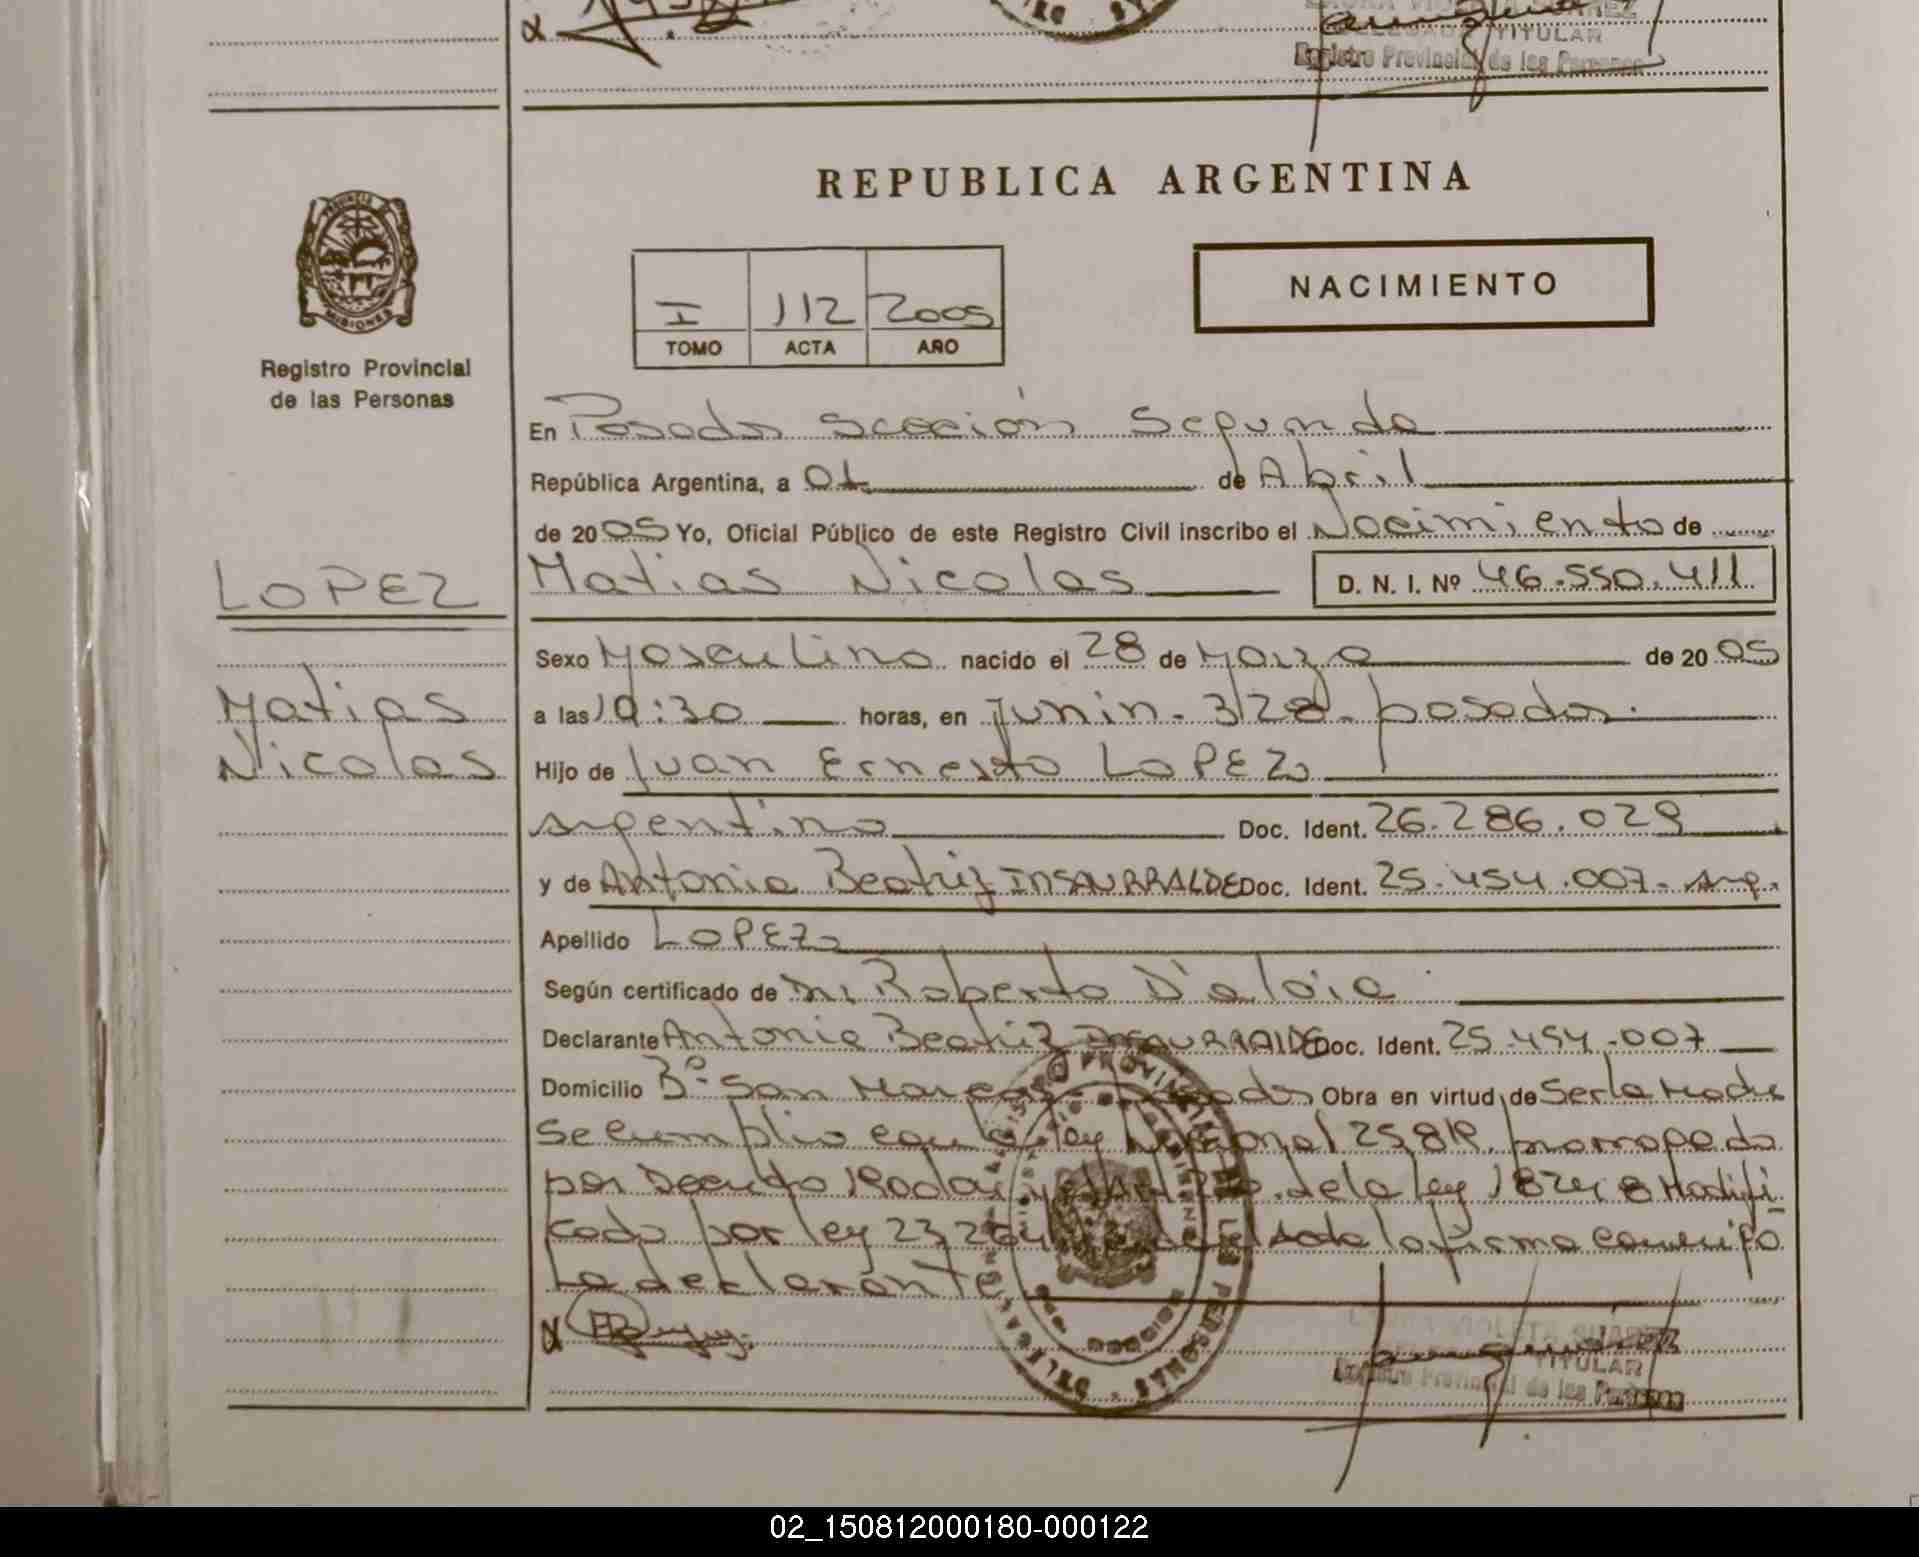 TITULAR
Registro Provincial de las Personas
REPUBLICA ARGENTINA
PROVINCIA DE
MISIONES
Registro Provincial
de las Personas
I 112 2005
TOMO ACTA AÑO
NACIMIENTO
En Posadas sección Segunda
República Argentina, a 01 de Abril
de 2005 Yo, Oficial Público de este Registro Civil inscribo el Nacimiento de
LOPEZ
Matias Nicolas D. N. I. Nº 46.550.411
Sexo Masculino nacido el 28 de Marzo de 2005
Matias
a las 19:30 horas, en Junin. 328. posadas.
Nicolas
Hijo de Juan Ernesto LOPEZ
argentino Doc. Ident. 26.286.029
y de Antonia Beatriz INSAURRALDE Doc. Ident. 25.454.007. arg.
Apellido LOPEZ
Según certificado de Roberto D'aloia
Declarante Antonia Beatriz INSAURRALDE Doc. Ident. 25.454.007
Domicilio Bº San Marcos Posadas Obra en virtud de Ser la Madre
Se cumplio con la ley Nacional prorrogada
por Decreto de la ley 18248 Modifi
cado por ley 23264 la firma conmigo
La declarante
TITULAR
Registro Provincial de las Personas
02_150812000180-000122